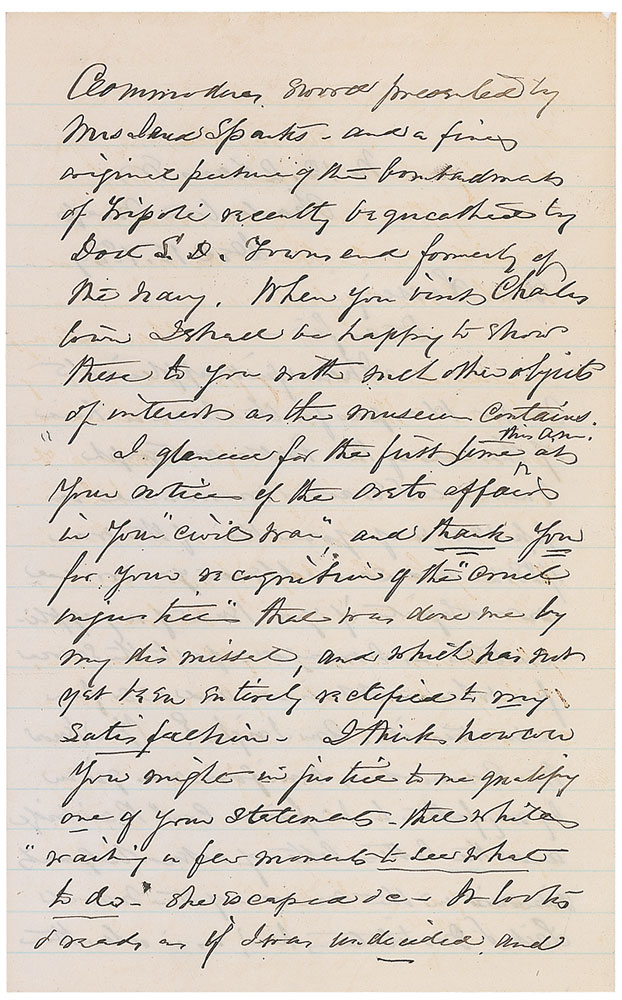 Commodores sword presented by
Mrs Sparks - and a fine
original picture of the bombardment
of Tripoli recently bequeathed by
Doct S. D. Townsend formerly of
the navy. When you visit Charles
town I shall be happy to show
these to you with such other objects
of interest as the museum contains.
" I glanced for the first time this a.m. at
your notice of the Oreto affair
in your "civil war", and thank you
for your recognition of the "cruel
injustice" that was done me by
my dismissal, and which has not
yet been entirely rectified to my
satisfaction - I think however
you might in justice to me qualify
one of your statements - that while
"waiting a few moments to see what
to do - she escaped &c - It looks
& reads as if I was undecided and